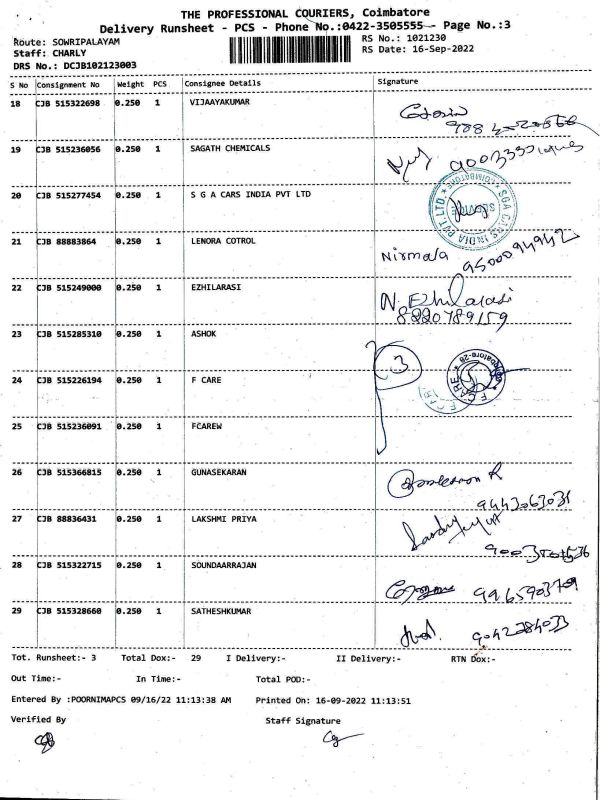 THE PROFESSIONAL COURIERS, Coimbatore
Delivery Runsheet - PCS - Phone No.:0422-3505555 - Page No.:3
Route: SOWRIPALAYAM
RS No.: 1021230
Staff: CHARLY
RS Date: 16-Sep-2022
DRS No.: DCJB102123003
S No Consignment No Weight PCS Consignee Details Signature
18 CJB 515322698 0.250 1 VIJAAYAKUMAR
19 CJB 515236056 0.250 1 SAGATH CHEMICALS
20 CJB 515277454 0.250 1 S G A CARS INDIA PVT LTD
SGA CARS INDIA PVT. LTD. * COIMBATORE *
21 CJB 88883864 0.250 1 LENORA COTROL
Nirmala 9500094942
22 CJB 515249000 0.250 1 EZHILARASI
N. Ezhilarasi
8220789159
23 CJB 515285310 0.250 1 ASHOK
3
24 CJB 515226194 0.250 1 F CARE
F CARE
25 CJB 515236091 0.250 1 FCAREW
26 CJB 515366815 0.250 1 GUNASEKARAN
9443063031
27 CJB 88836431 0.250 1 LAKSHMI PRIYA
28 CJB 515322715 0.250 1 SOUNDAARRAJAN
9965903709
29 CJB 515328660 0.250 1 SATHESHKUMAR
9042284033
Tot. Runsheet:- 3 Total Dox:- 29 I Delivery:- II Delivery:- RTN Dox:-
Out Time:- In Time:- Total POD:-
Entered By :POORNIMAPCS 09/16/22 11:13:38 AM Printed On: 16-09-2022 11:13:51
Verified By Staff Signature